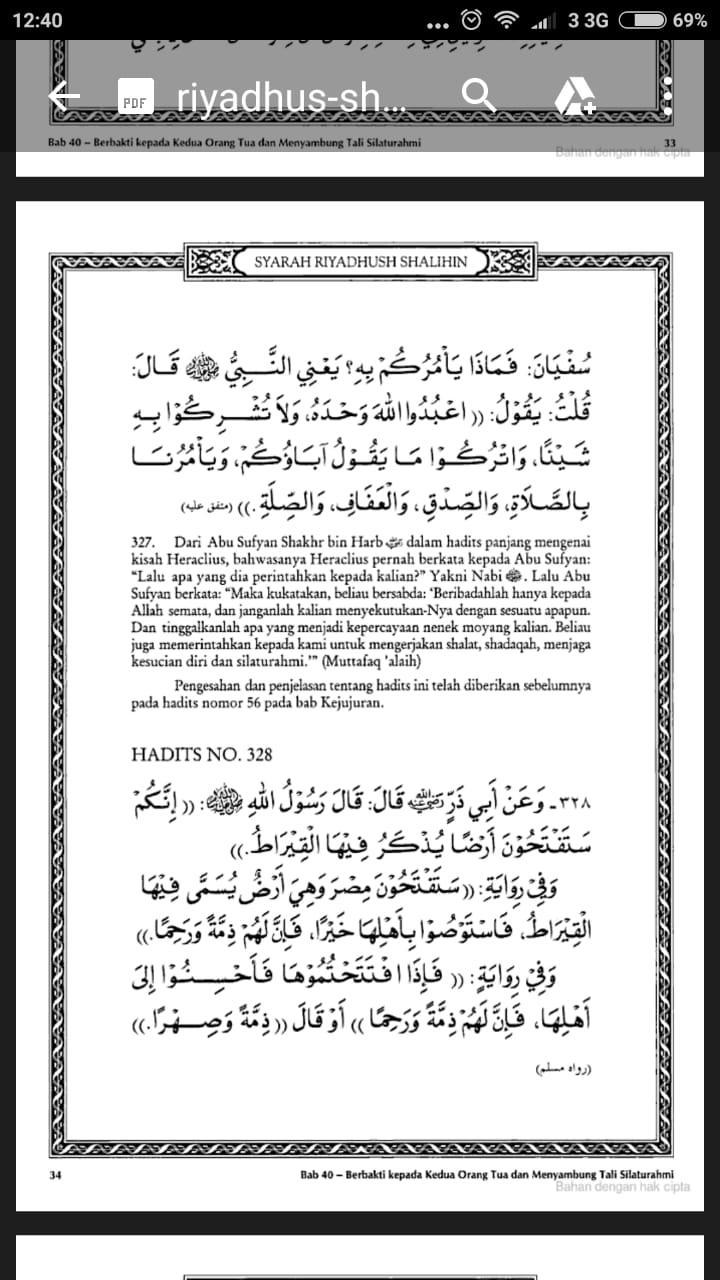 12:40
3 3G 69%
PDF riyadhus-sh...
Bab 40 – Berbakti kepada Kedua Orang Tua dan Menyambung Tali Silaturahmi 33
Bahan dengan hak cipta
SYARAH RIYADHUSH SHALIHIN
سُفْيَانَ: فَمَاذَا يَأْمُرُكُمْ بِهِ؟ يَعْنِي النَّبِيُّ ﷺ قَالَ:
قُلْتُ: يَقُوْلُ: ((اعْبُدُوا اللهَ وَحْدَهُ، وَلاَ تُشْرِكُوْا بِهِ
شَيْئًا، وَاتْرُكُوْا مَا يَقُوْلُ آبَاؤُكُمْ، وَيَأْمُرُنَا
بِالصَّلاَةِ، وَالصِّدْقِ، وَالْعَفَافِ، وَالصِّلَةِ.)) (متفق عليه)
327. Dari Abu Sufyan Shakhr bin Harb ؓ dalam hadits panjang mengenai
kisah Heraclius, bahwasanya Heraclius pernah berkata kepada Abu Sufyan:
“Lalu apa yang dia perintahkan kepada kalian?” Yakni Nabi ﷺ. Lalu Abu
Sufyan berkata: “Maka kukatakan, beliau bersabda: ‘Beribadahlah hanya kepada
Allah semata, dan janganlah kalian menyekutukan-Nya dengan sesuatu apapun.
Dan tinggalkanlah apa yang menjadi kepercayaan nenek moyang kalian. Beliau
juga memerintahkan kepada kami untuk mengerjakan shalat, shadaqah, menjaga
kesucian diri dan silaturahmi.’” (Muttafaq ’alaih)
Pengesahan dan penjelasan tentang hadits ini telah diberikan sebelumnya
pada hadits nomor 56 pada bab Kejujuran.
HADITS NO. 328
٣٢٨- وَعَنْ أَبِي ذَرٍّ رضي الله عنه قَالَ: قَالَ رَسُوْلُ اللهِ ﷺ: ((إِنَّكُمْ
سَتَفْتَحُوْنَ أَرْضًا يُذْكَرُ فِيْهَا الْقِيْرَاطُ.))
وَفِيْ رِوَايَةٍ: ((سَتَفْتَحُوْنَ مِصْرَ وَهِيَ أَرْضٌ يُسَمَّى فِيْهَا
الْقِيْرَاطُ، فَاسْتَوْصُوْا بِأَهْلِهَا خَيْرًا، فَإِنَّ لَهُمْ ذِمَّةً وَرَحِمًا.))
وَفِيْ رِوَايَةٍ: ((فَإِذَا افْتَتَحْتُمُوْهَا فَأَحْسِنُوْا إِلَى
أَهْلِهَا، فَإِنَّ لَهُمْ ذِمَّةً وَرَحِمًا)) أَوْ قَالَ ((ذِمَّةً وَصِهْرًا.))
(رواه مسلم)
34 Bab 40 – Berbakti kepada Kedua Orang Tua dan Menyambung Tali Silaturahmi
Bahan dengan hak cipta